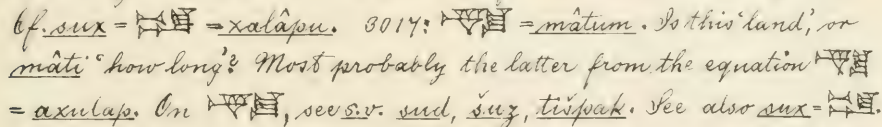 Cf. sux = = xalâpu. 3017: = mâtum. Is this 'land', or
mâti 'how long'? Most probably the latter from the equation
= axulap. On , see s.v. sud, šuz, tišpak. See also sux = .